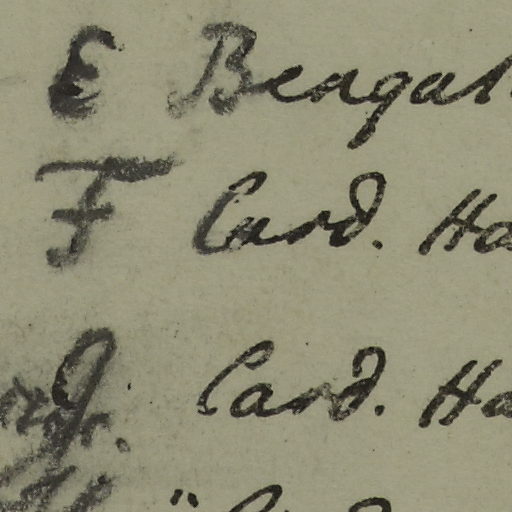 E Bengal
F Card. Ha
G Card. Ha